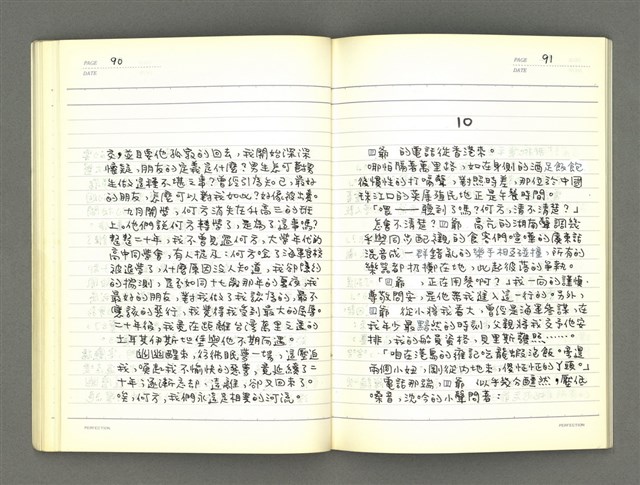 PAGE 90
DATE
交，並且要他孤寂的回去，我開始深深
懷疑，朋友的定義是什麼？男生怎可能
是做這種不堪之事？曾經引為知己，最好
的朋友，怎麼可以對我如此？好像被
七月開學，何方消失在升高三的班
上。他們說何方轉學了，是為了這事嗎？
整整二十年，我不曾見過何方，大學年代的
高中同學會，有人提及：何方唸了海軍官校
被退學了，什麼原因沒人知道，我卻隱約
的揣測，是否如同十七歲那年的夏夜，我
最好的朋友，對我做了我認為的，最不
應該的惡行，我覺得我受到最大的侮辱。
二十年後，我竟在距離台灣萬里之遙的
土耳其伊斯坦堡與他不期而遇。
幽幽醒來，好像眠夢一場，這麼近
我，喚起我不愉快的惡夢，竟延續了二
十年？逐漸忘卻，遠離，卻又回來了。
唉，何方，我們永遠是相異的河流。
PERFECTION
PAGE 91
DATE
10
四爺 的電話從香港來。
哪怕隔著萬里路，如在身側的酒足飯飽
後慣性的打嗝聲，對照時差，那位於中國
珠江口的英屬殖民地正是午餐時間。
「喂——聽到了嗎？何方，清不清楚？」
怎會不清楚？四爺 高亢的湖南聲調幾
乎與同步配襯的食客們喧嘩的廣東話
混合成一群錯亂的樂手相互碰撞，所有的
樂器都抗衡在地，此起彼落的爭執。
「四爺，正在用餐啊？」我一向的謹慎，
尊敬問安，是他帶我進入這一行的。另外，
四爺 從小將我看大，曾經是海軍參謀，在
我年少最黯然的時刻，父親將我交予他安
排，我的船員資格，貝里斯護照……。
「咱在港島的雍記吃龍蝦泡飯。旁邊
兩個小妞，剛從內地來，傻怔怔的丫頭。」
電話那端，四爺 似乎幾分醺然，壓低
嗓音，沈吟的小聲問着：
PERFECTION